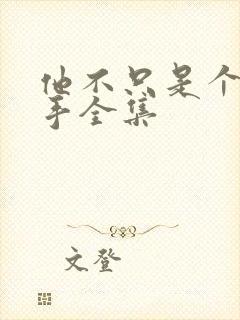 他不只是个
手全集
文登